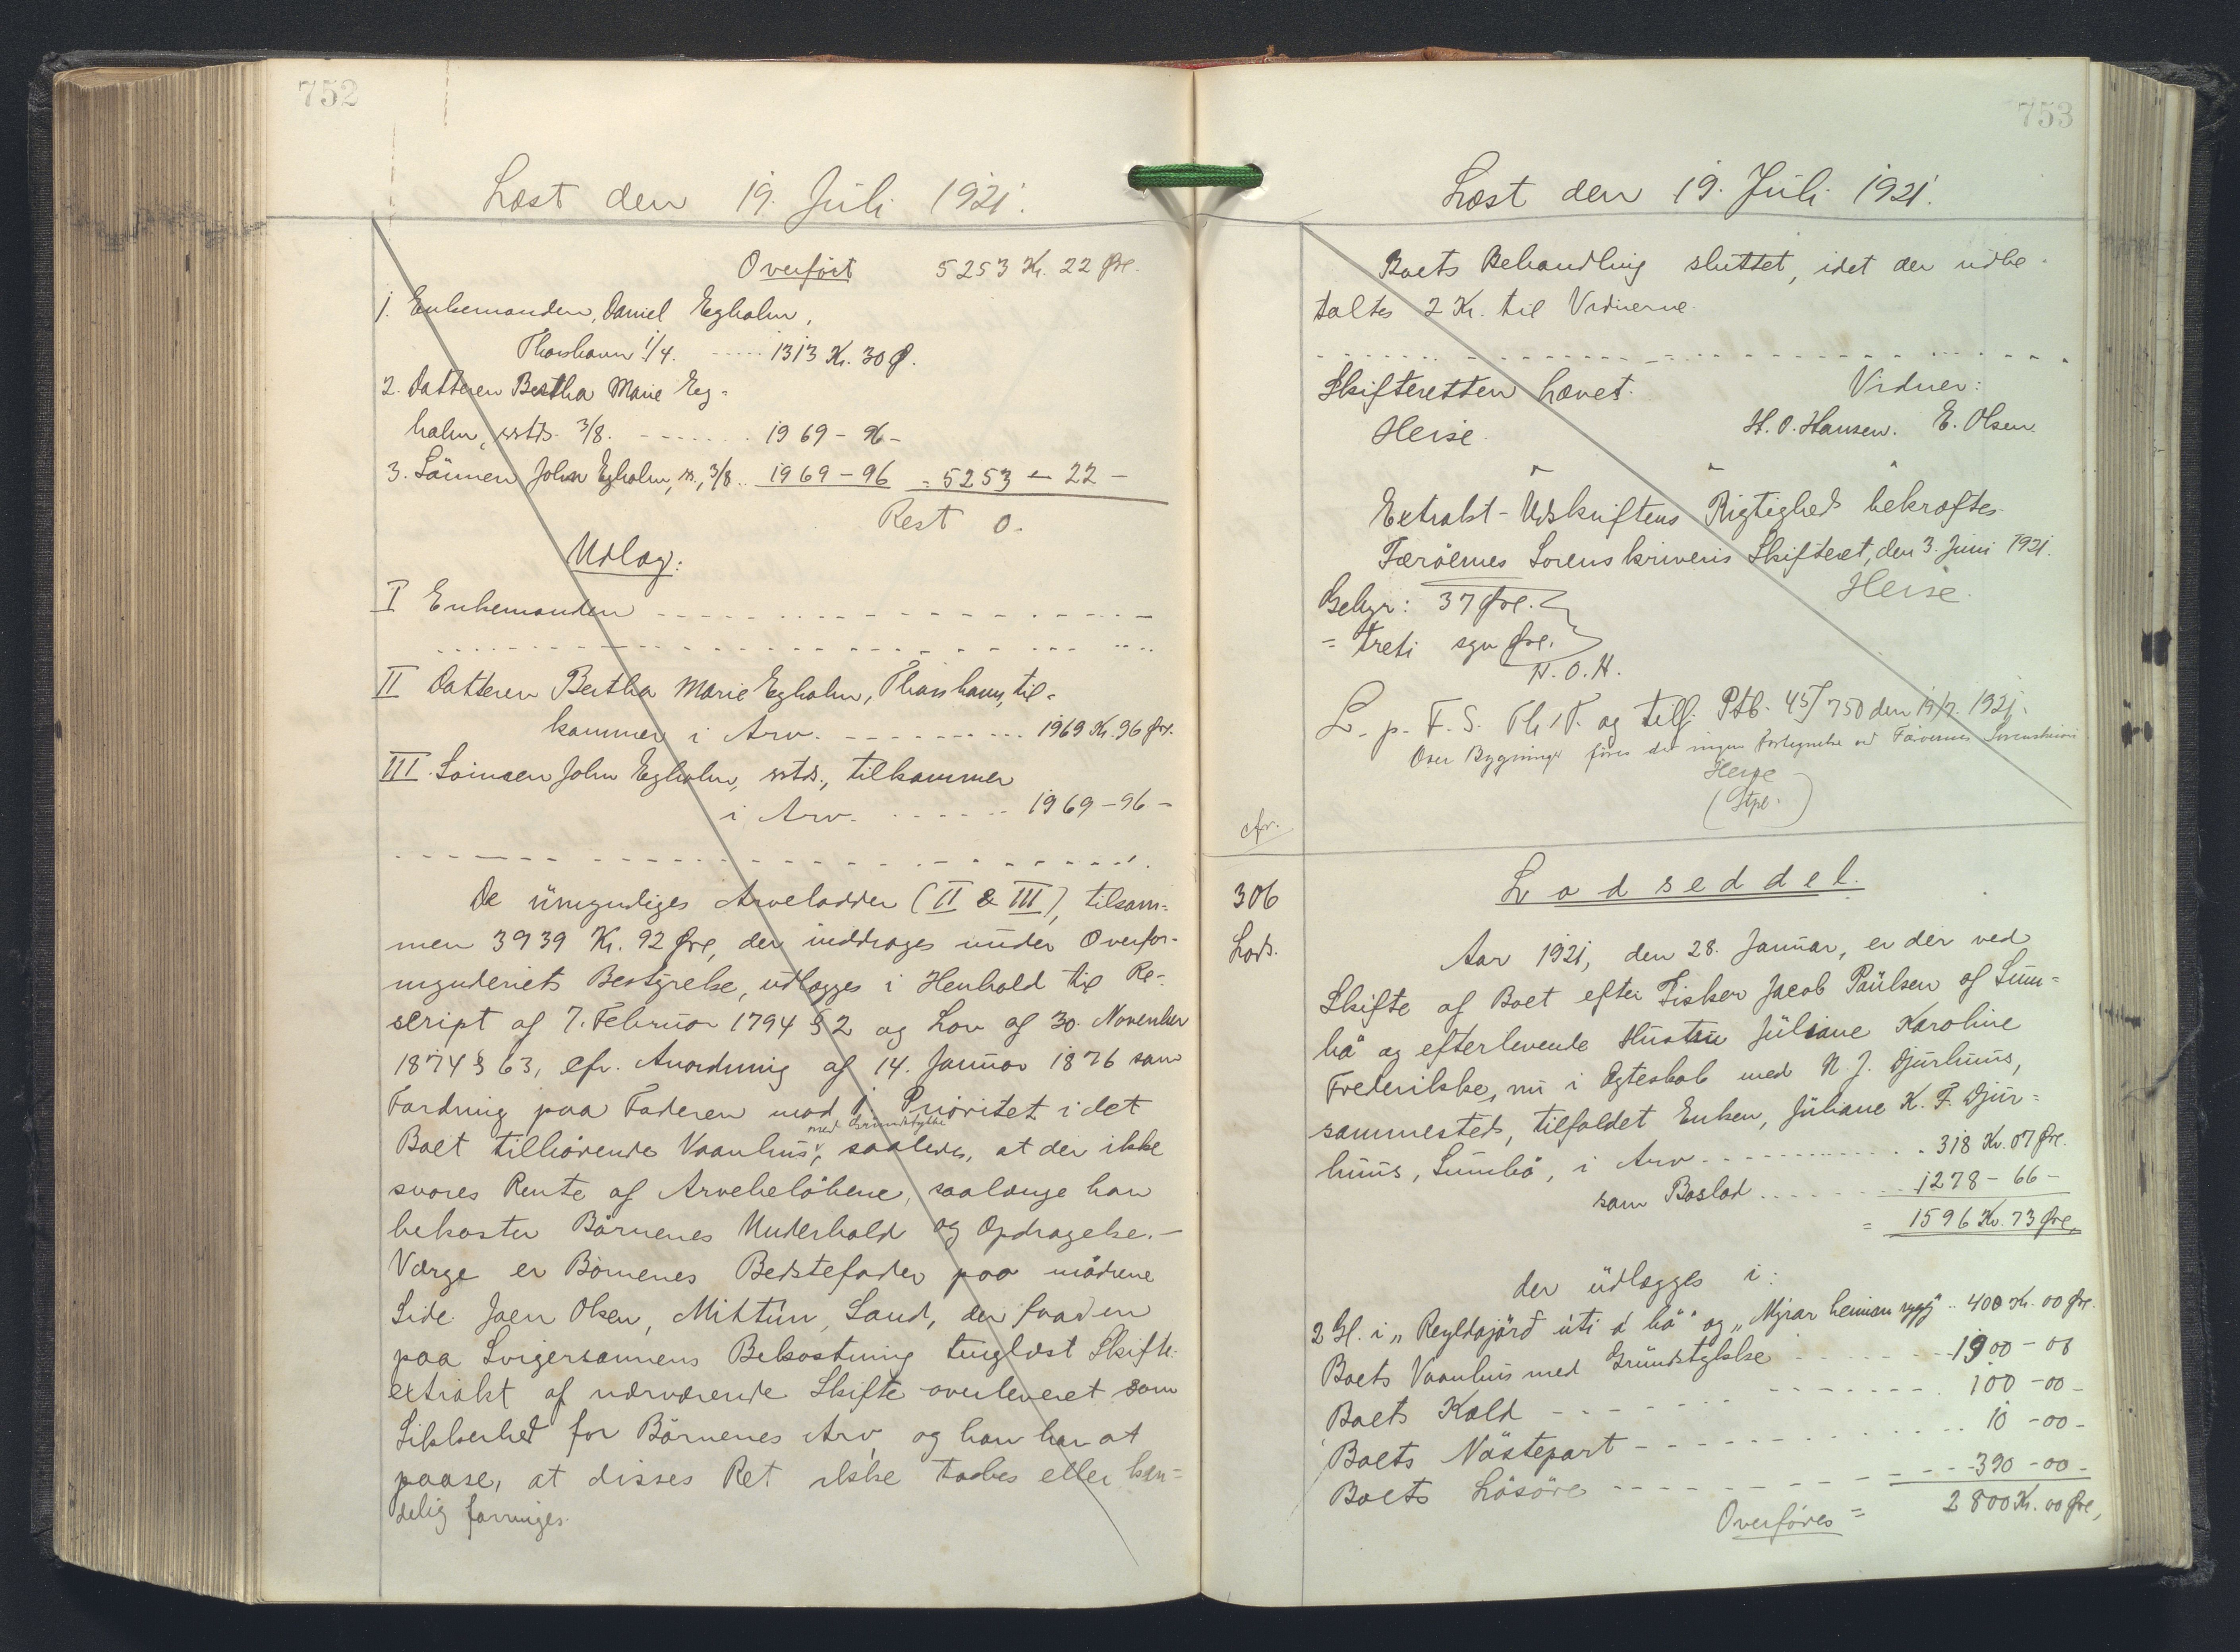 752
Læst den 19. Juli 1921.
Overført 5253 Kr. 22 Øre.
1. Enkemanden, Daniel Egholm,
Thorshavn 1/4. ----- 1313 Kr. 30 Ø.
2. Datteren Bertha Marie Eg=
holm, sstds. 3/8. ------- 1969 - 96 -
3. Sönnen John Egholm, 3/8 .. 1969 - 96 = 5253 - 22 -
Rest 0.
Udlæg:
I Enkemanden
II Datteren Bertha Marie Egholm, Thorshavn, til=
kommer i Arv. ---------- 1969 Kr. 96 Ør.
III. Sönnen John Egholm, sstds., tilkommer
i Arv. ------ 1969 - 96 -
De umyndiges Arvelodder (II & III), tilsam=
men 3939 Kr. 92 Øre, der inddrages under Overfor=
mynderiets Bestyrelse, udlægges i Henhold til Re=
script af 7. Februar 1794 § 2 og Lov af 30. November
1874 § 63, cfr. Anordning af 14. Januar 1876 som
Fordring paa Faderen mod 1. Prioritet i det
med Grundstykke
Boet tilhörende Vaanhus, saaledes, at der ikke
svares Rente af Arvebelöbene, saalænge han
bekoster Börnenes Underhold og Opdragelse. -
Værge er Börnenes Bedstefader paa mödrene
Side Joen Olsen, Mittún, Sand, der faar en
paa Svigersönnens Bekostning tinglæst Skifte=
extrakt af nærværende Skifte overleveret som
Sikkerhed for Börnenes Arv, og han har at
paase, at disses Ret ikke tabes eller kæn=
delig forringes.
753
Læst den 19. Juli 1921.
Boets Behandling sluttet, idet der udbe=
taltes 2 Kr. til Vidnerne.
Skifteretten hævet. Vidner:
Heise. H. O. Hansen. E. Olsen.
Extrakt-Udskriftens Rigtighed bekræftes.
Færöernes Sorenskriveris Skifteret, den 3. Juni 1921.
Heise.
Gebyr: 37 Øre.
= treti syv Øre.
H. O. H.
L. p. F. S. Th T. og tilf. Ptb. 45/750 den 19/7. 1921.
Over Bygninger föres der ingen Fortegnelse ved Færöernes Sorenskriveri
Heise
(Stpl.)
cfr.
306
Lods.
Lodseddel.
Aar 1921, den 28. Januar, er der ved
Skifte af Boet efter Fisker Jacob Paulsen af Sum=
bö og efterlevende Hustru Juliane Karoline
Frederikke, nu i Ægteskab med N. J. Djurhuus,
sammesteds, tilfaldet Enken, Juliane K. F. Djur=
huus, Sumbö, i Arv ------------ 318 Kr. 07 Øre.
som Boslod ------ 1278 - 66 -
= 1596 Kr. 73 Øre,
der udlægges i:
2 Gl. i "Reyldajörd úti á bö" og "Myrar heiman rygg" .. 400 Kr. 00 Øre.
Boets Vaanhus med Grundstykke ------ 1900 - 00
Boets Kold -------- 100 - 00 -
Boets Nöstepart ------ 10 - 00 -
Boets Lösöre -------- 390 - 00 -
Overföres = 2800 Kr. 00 Øre,